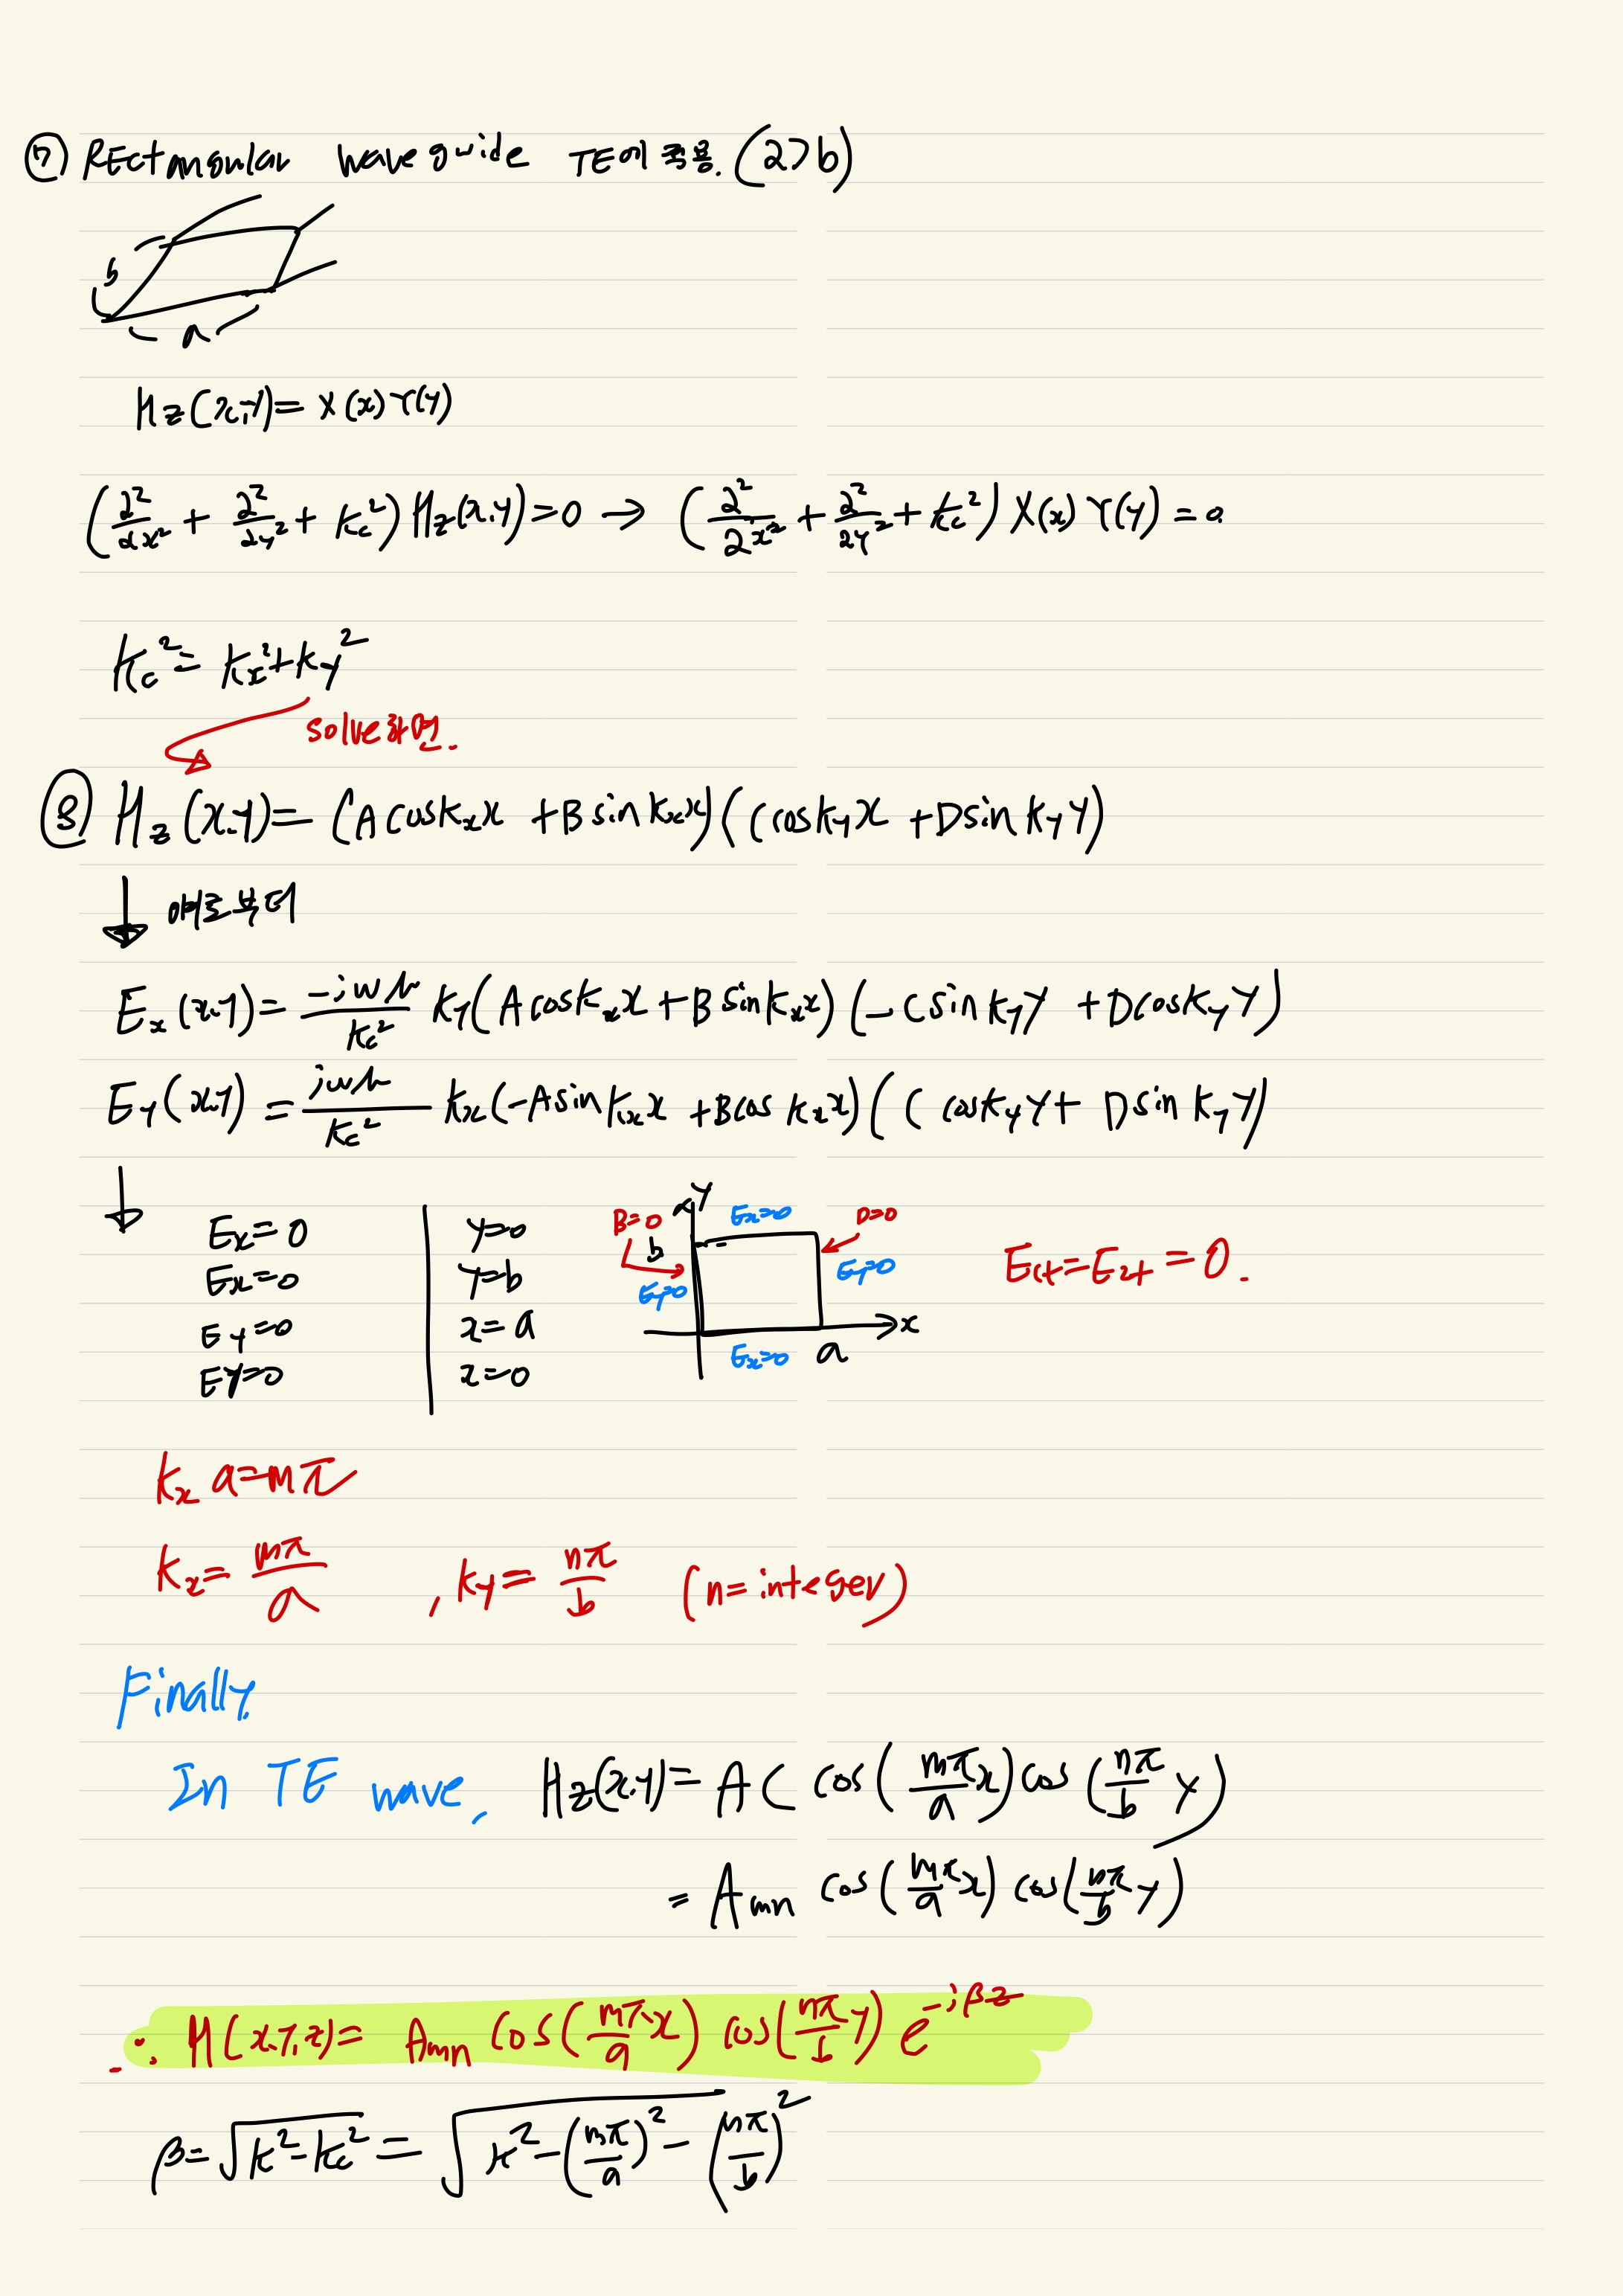 ⑦ Rectangular waveguide TE에 적용. (a>b)
b
a
Hz(x,y)= X(x)Y(y)
(∂²/∂x² + ∂²/∂y² + kc²) Hz(x,y)=0 → (∂²/∂x² + ∂²/∂y² + kc²) X(x) Y(y) = 0
kc² = kx²+ky²
solve하면.
⑧ Hz(x,y)= (A cos kx x + B sin kx x)(C cos ky x + D sin ky y)
↓ 이로부터
Ex(x,y)= -jωμ/kc² ky(A cos kx x + B sin kx x)(-C sin ky y + D cos ky y)
Ey(x,y) = jωμ/kc² kx(-A sin kx x + B cos kx x)(C cos ky y + D sin ky y)
↓
Ex=0 | y=0
Ex=0 | y=b
Ey=0 | x=a
Ey=0 | x=0
y
B=0 Ex=0 D=0
b
Ey=0 Ey=0
x
Ex=0 a
E1t=E2t=0.
kx a=mπ
kx= mπ/a , ky= nπ/b (n=integer)
Finally,
In TE wave, Hz(x,y)= AC cos(mπ/a x) cos(nπ/b y)
= Amn cos(mπ/a x) cos(nπ/b y)
∴ H(x,y,z)= Amn cos(mπ/a x) cos(nπ/b y) e^-jβz
β=√k²-kc² = √k²-(mπ/a)²-(nπ/b)²